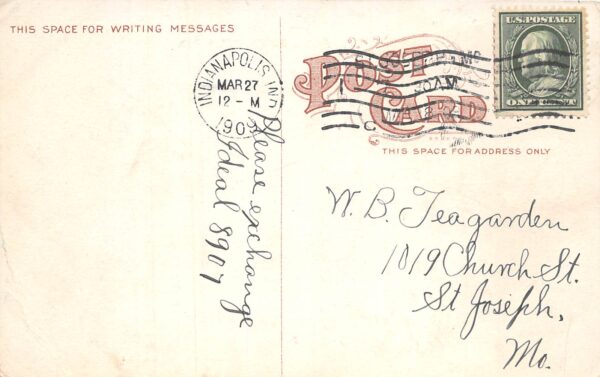 THIS SPACE FOR WRITING MESSAGES
INDIANAPOLIS, IND.
MAR 27
12 - M
190
Please exchange
Ideal 8907
POST
CARD
THIS SPACE FOR ADDRESS ONLY
U.S. POSTAGE
ONE CENT
W. B. Teagarden
1019 Church St.
St Joseph,
Mo.